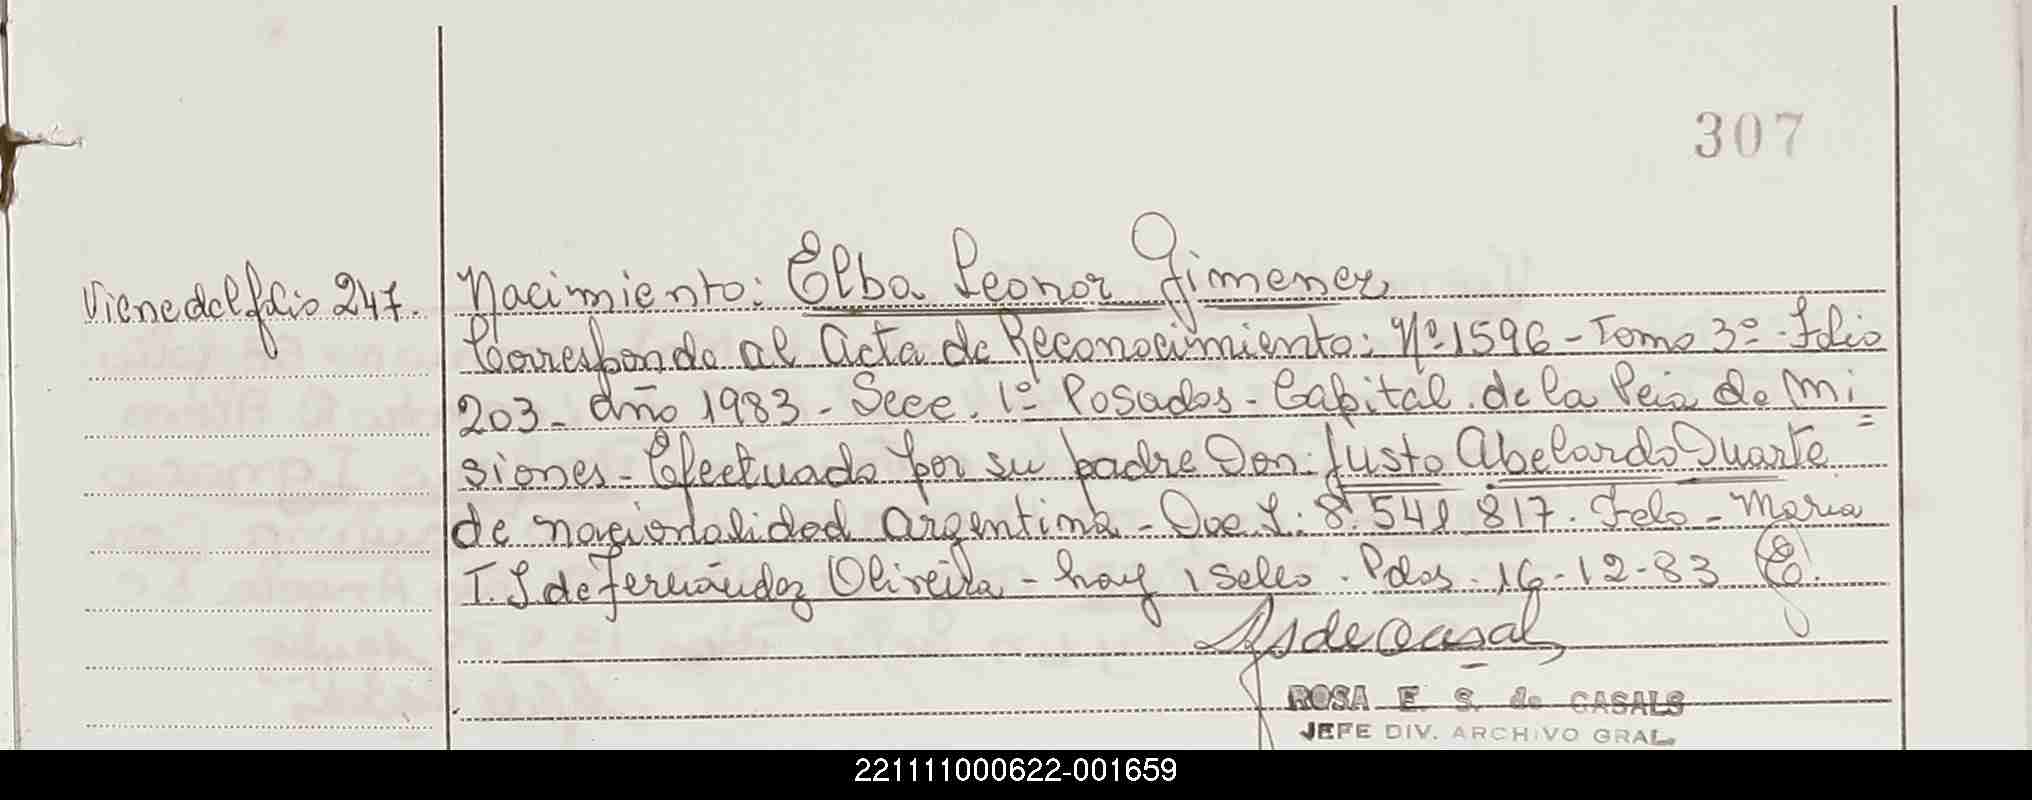 307
Viene del folio 247. Nacimiento: Elba Leonor Gimenez
Corresponde al Acta de Reconocimiento: Nº 1596 - Tomo 3º - Folio
203 - Año 1983 - Secc. 1º Posadas - Capital de la Pcia de Mi
siones - Efectuado por su padre Don: Justo Abelardo Duarte
de nacionalidad argentina - Doc I: 8.541.817. Fdo - Maria
I. S. de Fernández Oliveira - hay 1 sello. Pdas. 16-12-83
RSdeCasals
ROSA E. S. de CASALS
JEFE DIV. ARCHIVO GRAL.
221111000622-001659